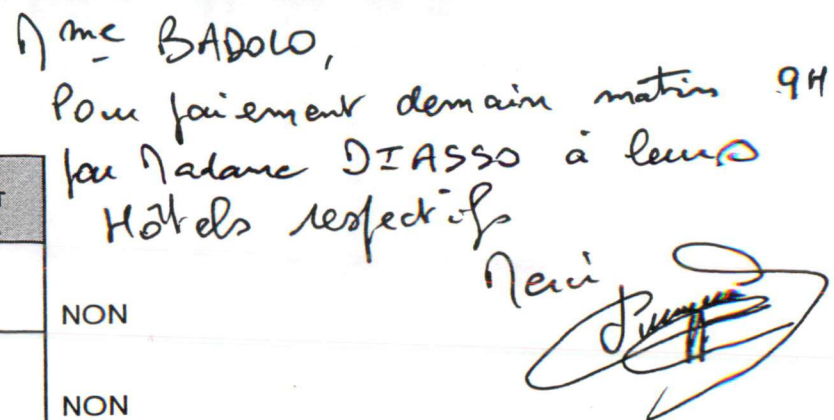 Mme BADOLO,
Pour paiement demain matin 9H
par Madame DIASSO à leurs
Hôtels respectifs
Merci
T
NON
NON